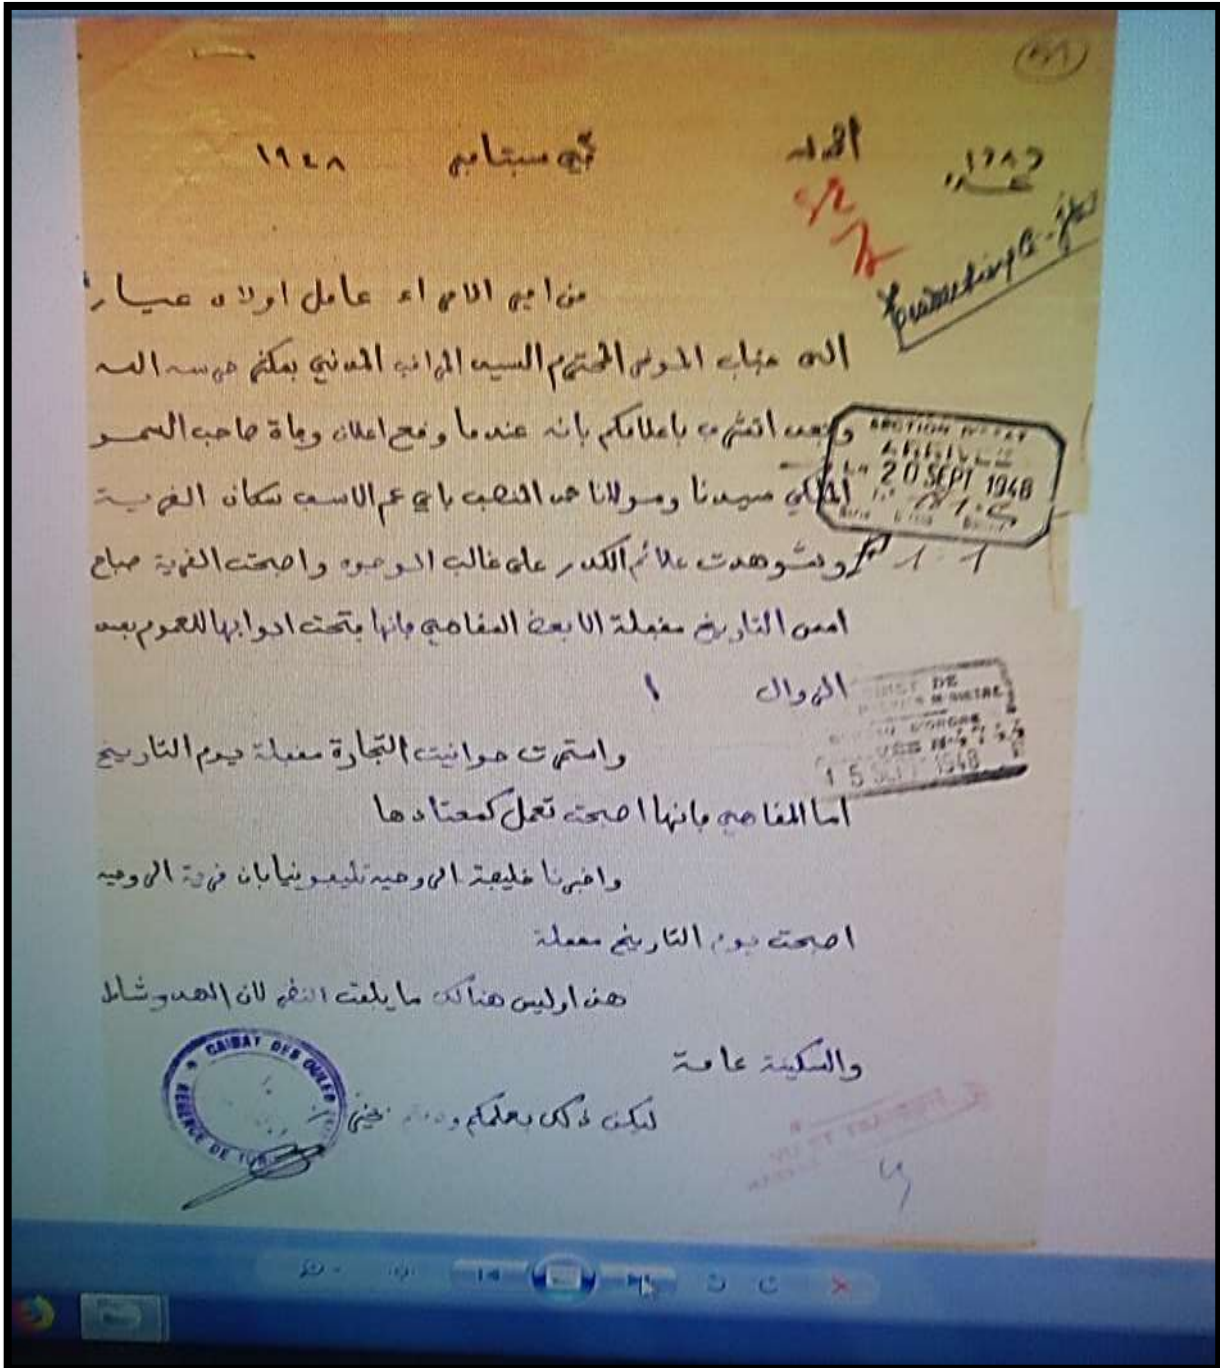 الحمد لله
في سبتامبر ١٩٤٨
من امير الامراء عامل اولاد عيار
الى جناب الموقر المحترم السيد المراقب المدني بمكثر حرسه الله
وبعد اتشرف باعلامكم بانه عندما وقع اعلان وفاة صاحب السمو
الملكي سيدنا ومولانا محمد المنصف باي عم الاسف سكان القرية
وشوهدت علائم الكدر على غالب الوجوه واصبحت القرية صباح
امس التاريخ مقفلة الا بعض المقاهي فانها فتحت ابوابها للعموم بعد
الزوال
واستمرت حوانيت التجارة مقفلة يوم التاريخ
اما المقاهي فانها اصبحت تعمل كمعتادها
واخبرنا خليفة الروحية تليفونيا بان قرية الروحية
اصبحت يوم التاريخ مقفلة
هذا وليس هنالك ما يلفت النظر لان الهدو شامل
والسكينة عامة
ليكن ذلك بعلمكم ودمتم بخير
SECTION D'ETAT
ARRIVEE
20 SEPT 1948
15 SEPT 1948
CAIDAT DES OULED
REGENCE DE TUNIS